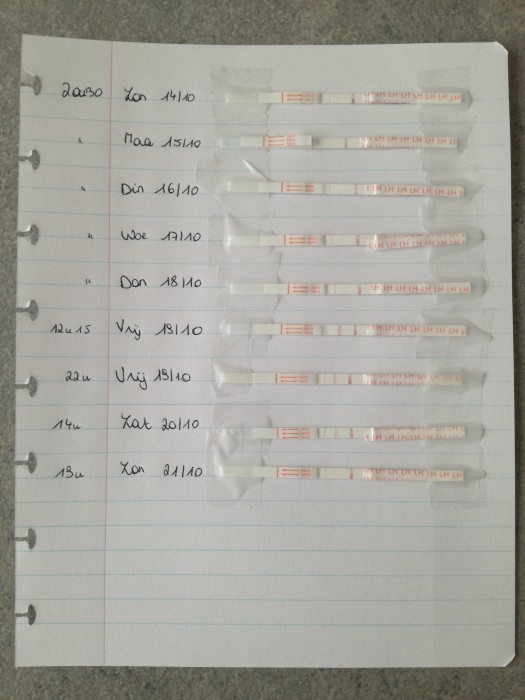 20u30 Zon 14/10
" Maa 15/10
" Din 16/10
" Woe 17/10
" Don 18/10
12u15 Vrij 19/10
22u Vrij 19/10
14u Zat 20/10
13u Zon 21/10